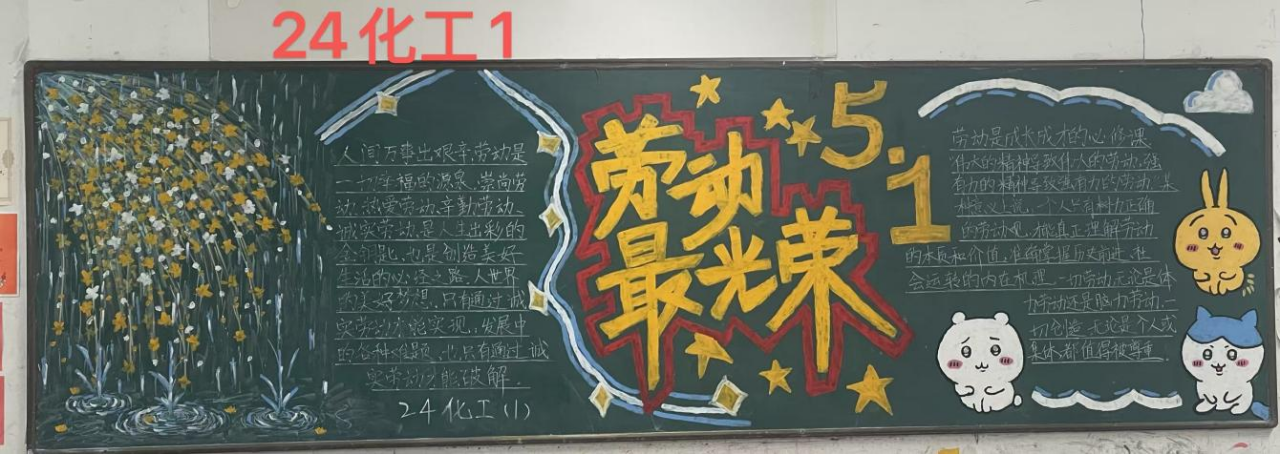 24化工1
人间万事出艰辛,劳动是
一切幸福的源泉,崇尚劳
动、热爱劳动、辛勤劳动、
诚实劳动,是人生出彩的
金钥匙,也是创造美好
生活的必经之路,人世界
的美好梦想,只有通过诚
实劳动才能实现,发展中
的各种难题,也只有通过诚
实劳动才能破解.
24化工(1)
劳动
最光荣
5.1
劳动是成长成才的必修课
伟大的精神导致伟大的劳动,强
有力的精神导致强有力的劳动,某
种意义上说,一个人只有树立正确
的劳动观,才能真正理解劳动
的本质和价值,准确掌握历史前进、社
会运转的内在机理.一切劳动,无论是体
力劳动还是脑力劳动,一
切创造,无论是个人或
集体,都值得被尊重.